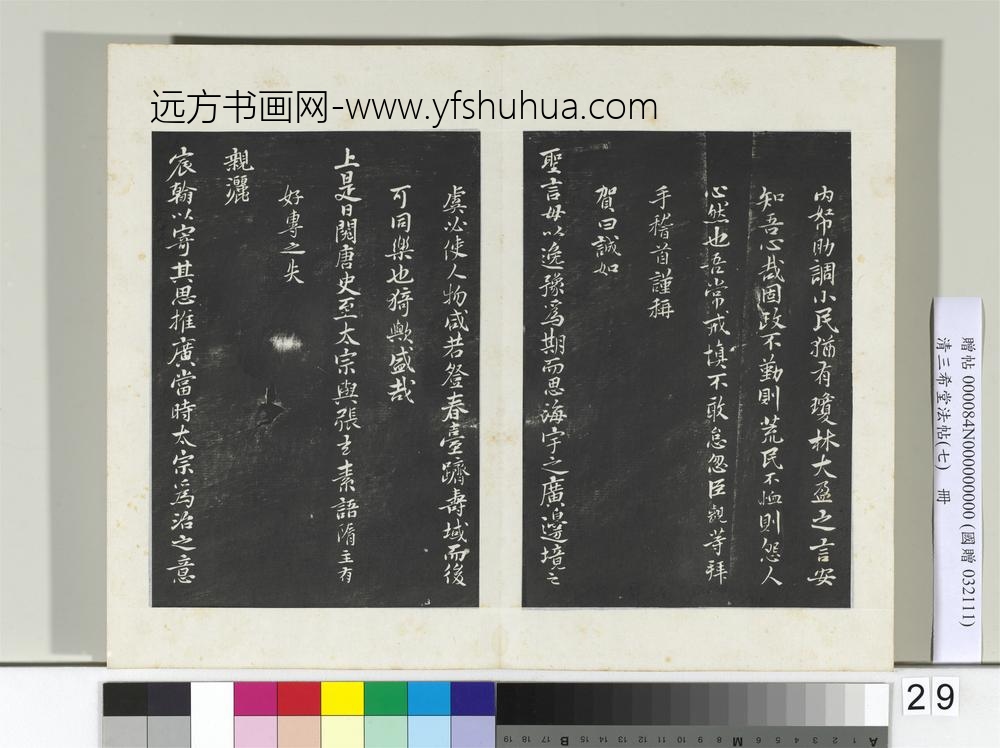 远方书画网-www.yfshuhua.com
内帑助調小民猶有瓊林大盈之言安
知吾心哉固政不勤則荒民不恤則怨人
心然也吾常戒慎不敢怠忽臣觀等拜
手稽首謹稱
賀曰誠如
聖言毋以逸豫為期而思海宇之廣邊境之
虞必使人物咸若登春臺躋壽域而後
可同樂也猗歟盛哉
上是日閱唐史至太宗與張玄素語隋主有
好專之失
親灑
宸翰以寄其思推廣當時太宗為治之意
贈帖 000084N000000000 (國贈 032111)
清三希堂法帖(七) 冊
29